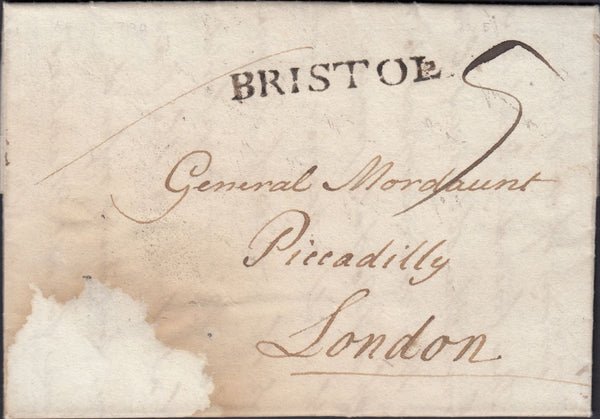 BRISTOL
5
General Mordaunt
Piccadilly
London